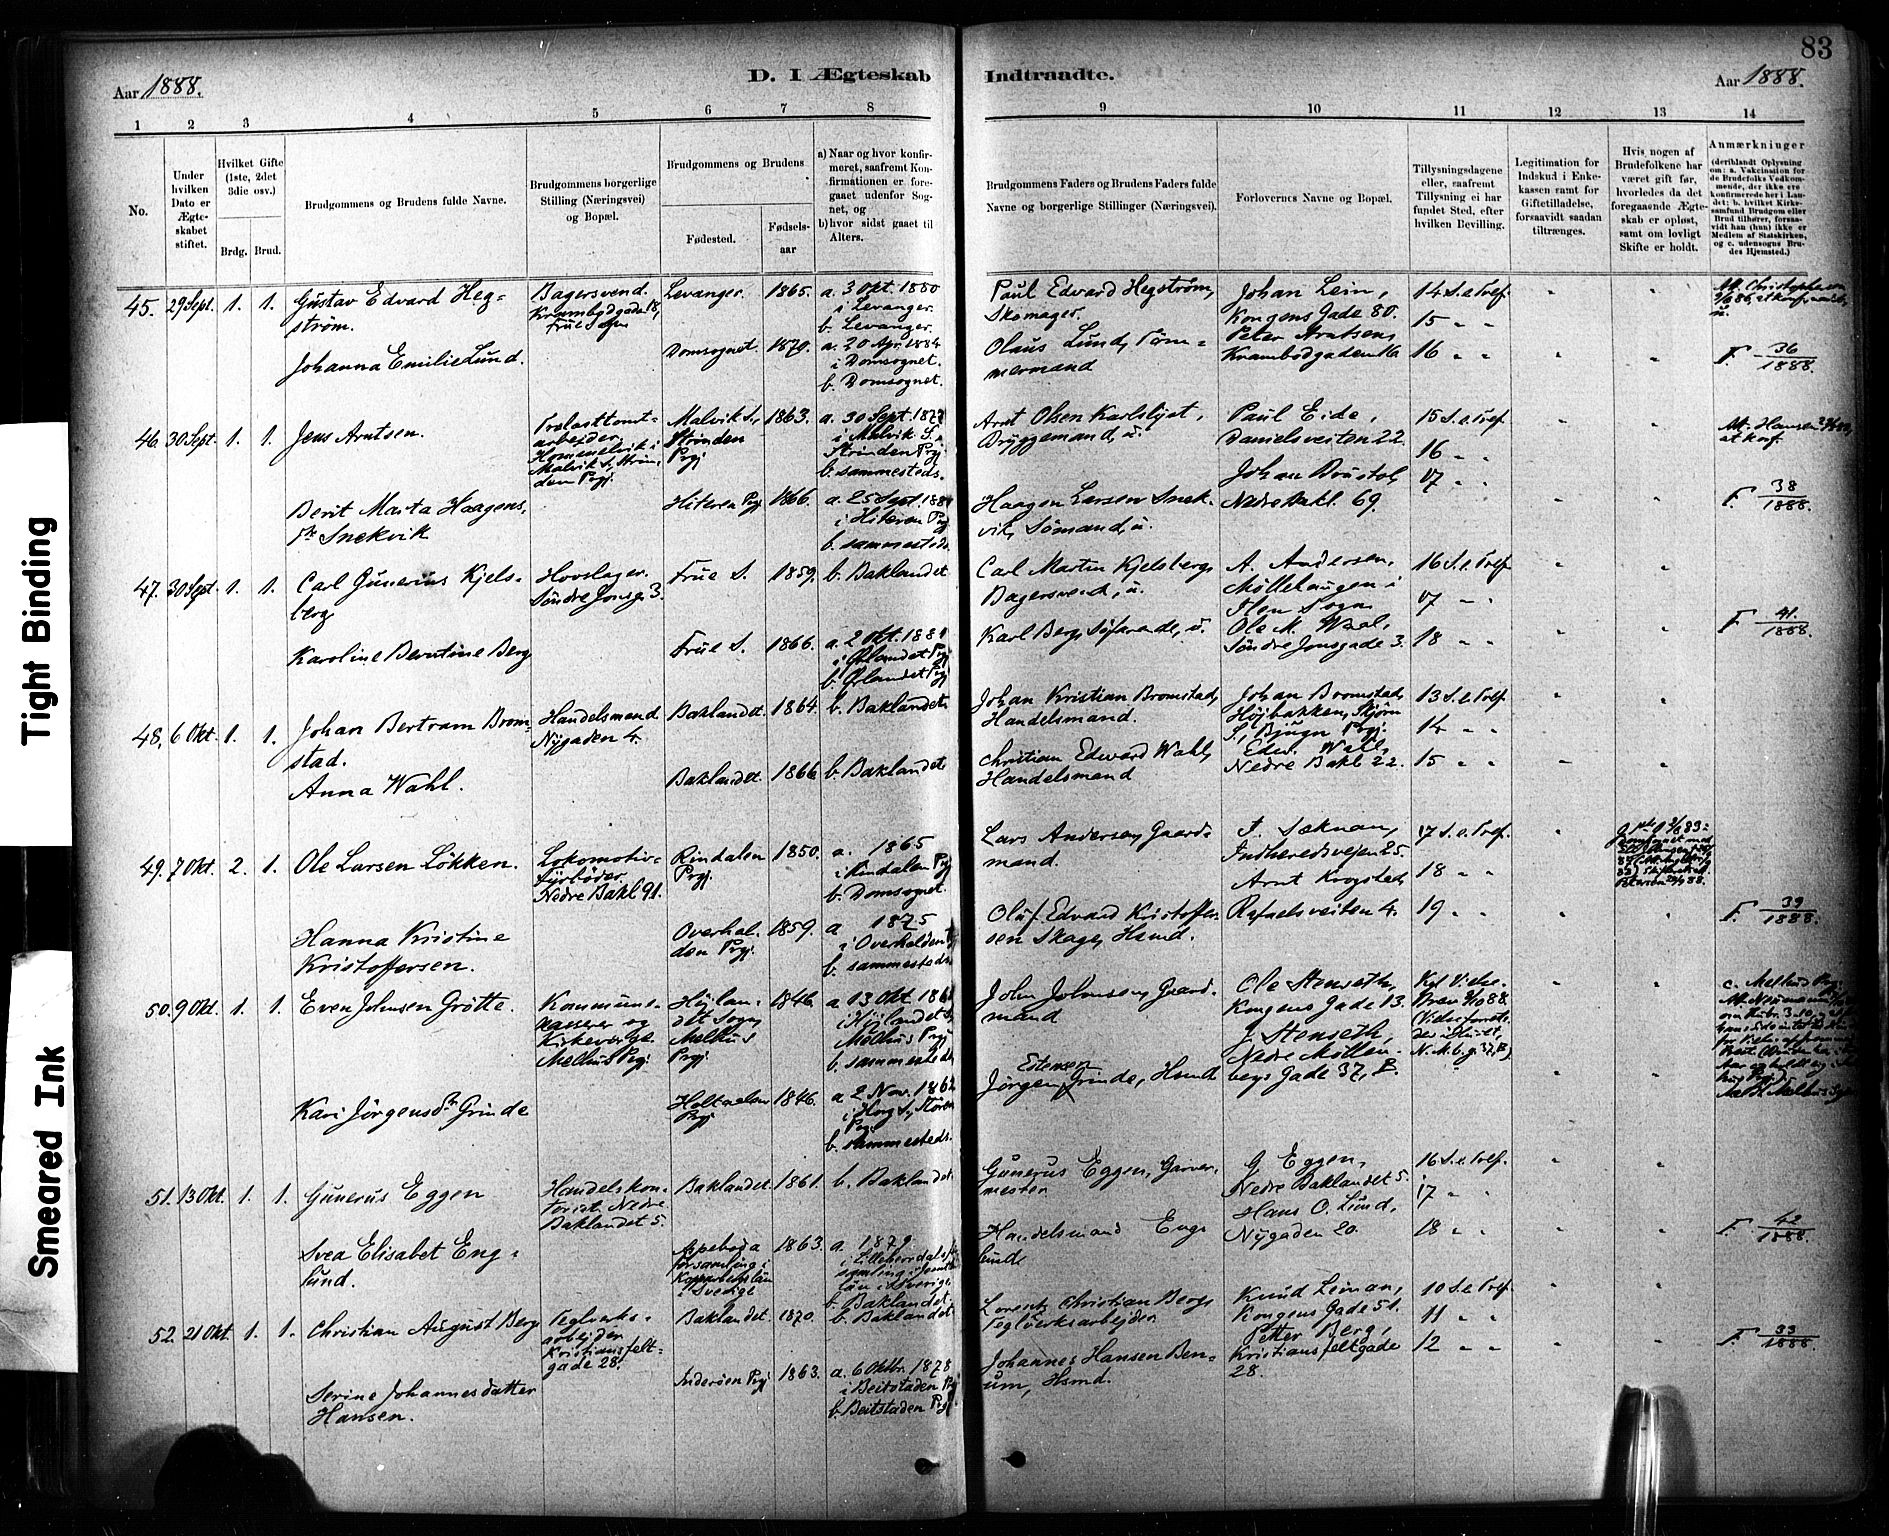 83
D. I Ægteskab Indtraadte.
Aar 1888. Aar 1888.
1 2 3 4 5 6 7 8 9 10 11 12 13 14
No.
Under hvilken Dato er Ægteskabet stiftet.
Hvilket Gifte (1ste, 2det 3die osv.)
Brdg. Brud.
Brudgommens og Brudens fulde Navne.
Brudgommens borgerlige Stilling (Næringsvei) og Bopæl.
Brudgommens og Brudens
Fødested. Fødselsaar
a) Naar og hvor konfirmeret, saafremt Konfirmationen er foregaaet udenfor Sognet, og
b) hvor sidst gaaet til Alters.
Brudgommens Faders og Brudens Faders fulde Navne og borgerlige Stillinger (Næringsvei).
Forlovernes Navne og Bopæl.
Tillysningsdagene eller, saafremt Tillysning ei har fundet Sted, efter hvilken Bevilling.
Legitimation for Indskud i Enkekassen ramt for Giftetilladelse, forsaavidt saadan tiltrænges.
Hvis nogen af Brudefolkene har været gift før, hvorledes da det foregaaende Ægteskab er opløst, samt om lovligt Skifte er holdt.
Anmærkninger
(deriblandt Oplysning om: a. Vakcination for de Brudefolks Vedkommende, der ikke ere konfirmerede her i Landet; b. hvilket Kirkesamfund Brudgom eller Brud tilhører, forsaavidt han (hun) ikke er Medlem af Statskirken, og c. udensogns Brudes Hjemsted.)
45. 29 Sept. 1. 1. Gustav Edvard Hegström.
Bagersvend. Krambodgade 18, Frue Sogn
Levanger. 1865. a. 3 Okt. 1880 i Levanger. b. Levanger.
Paul Edvard Hegström, Skomager.
Johan Lein, Kongens Gade 80.
14 S. e. Tref. 15 " " 16 " "
Johanna Emilie Lund.
Domsognet. 1870. a. 20 Apr. 1884 i Domsognet. b. Domsognet.
Olaus Lund, Tømmermand
Peter Arntsen, Krambodgaden 16
F. 36/1888.
46. 30 Sept. 1. 1. Jens Arntsen.
arbeider, Hommelvik i Malvik S., Strinden Prgj.
Malvik S., Strinden Prgj 1863. a. 30 Sept. 1877 i Malvik S., Strinden Prgj. b. sammesteds.
Arnt Olsen Karlslyst, Bryggemand, u.
Paul Eide, Danielsveiten 22.
15 S. e. Tref 16 " " 17 " "
Berit Marta Haagensdr Snekvik
Hiteren Prgj 1866. a. 25 Sept. 1881 i Hiteren Prgj b. sammesteds
Haagen Larsen Snekvik, Sømand, u.
Johan Bustol, Nedre Bakl. 69.
F. 38/1888.
47. 30 Sept. 1. 1. Carl Gunerius Kjelsberg
Hovslager. Søndre Jonsg. 3.
Frue S. 1859. b. Baklandet
Carl Martin Kjelsberg, Bagersvend, u.
A. Andersen, Møllehaugen i Ilen Sogn
16 S. e. Tref 17 " " 18 " "
Karoline Berntine Berg
Frue S. 1866. a. 2 Okt. 1881 i Ørlandet Prgj b. Ørlandet Prgj
Karl Berg, Søfarende, u.
Ole M. Waal, Søndre Jonsgade 3.
F 41./1888.
48. 6 Okt. 1. 1. Johan Bertram Bromstad.
Handelsmand. Nygaden 4.
Baklandet. 1864. b. Baklandet
Johan Kristian Bromstad, Handelsmand.
Johan Bromstad, Højbakken, Skjørn S., Bjugn Prgj.
13 S. e. Tref. 14 " " 15 " "
Anna Wahl.
Baklandet. 1866. b. Baklandet
Christian Edvard Wahl, Handelsmand
Edw. Wahl, Nedre Bakl 22.
49. 7 Okt. 2. 1. Ole Larsen Løkken.
Lokomotivfyrbøder. Nedre Bakl. 91.
Rindalen Prgj. 1850. a. 1865 i Rindalen Prgj b. Domsognet.
Lars Andersen, Gaardmand.
Indherredsveien 25.
17 S. e. Tref. 18 " " 19 " "
Hanna Kristine Kristoffersen.
Overhalden Prgj. 1859. a 1875 i Overhalden b. sammesteds
Oluf Edvard Kristoffersen Skage, Hsmd.
Arnt Krogstad, Rafaelsveiten 4.
F. 39/1888.
50. 9 Okt. 1. 1. Even Johnsen Grötte.
Kommunekasserer og Kirkeværge. Melhus Prgj.
Højlandet Sogn, Melhus Prgj 1846. a 13 Okt 1861 i Højlandet S, Melhus Prgj b. sammesteds
John Johnsen, Gaardmand
Ole Stenseth, Kongens Gade 13.
Kari Jörgensdr Grinde
Holtaalen Prgj 1846. a 2 Nov. 1862 i Horg S., Støren Prgj. b. sammesteds.
Jørgen Estensen Grinde, Hsmd
J. Stenseth, Nedre Møllenbergs Gade 37, B.
51. 13 Okt. 1. 1. Gunerus Eggen
Handelskontorist. Nedre Baklandet 5.
Baklandet. 1861. b. Baklandet
Gunerus Eggen, Garvermester
G. Eggen, Nedre Baklandet 5.
16 S. e. Tref. 17 " " 18 " "
Svea Elisabet Englund.
1863. a. 1879 b. Baklandet.
Handelsmand Englund
Hans O. Lund, Nygaden 20.
F. 42/1888.
52. 21 Okt. 1. 1. Christian August Berg
Teglverksarbejder Kristiansfeltgade 28.
Baklandet. 1870. b. Baklandet
Lorentz Christian Berg, Teglverksarbejder
Knud Leiman, Kongens Gade 51.
10 S. e Tref 11 " " 12 " "
Serine Johannesdatter Hansen.
Inderøen Prgj 1863. a. 6 Oktbr. 1878 i Beitstaden Prgj b. Beitstaden Prgj
Johannes Hansen Benum, Hsmd.
Petter Berg, Kristiansfeltgade 28.
F. 33/1888.
Tight Binding
Smeared Ink